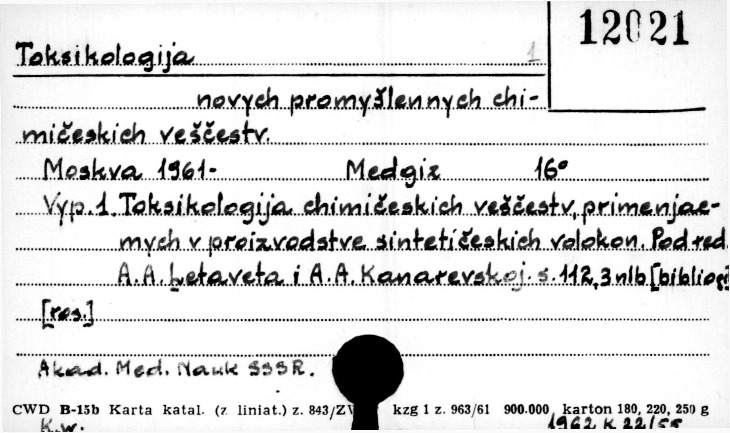 12021
Toksikologija 1
novych promyšlennych chi-
mičeskich veščestv.
Moskva 1961- Medgiz 16°
Vyp.1. Toksikologija chimičeskich veščestv, primenjae-
mych v proizvodstve sintetičeskich volokon. Pod red.
A.A. Letaveta i A.A. Kanarevskoj. s. 112, 3 nlb [bibliogr]
[ros.]
Akad. Med. Nauk SSSR.
CWD B-15b Karta katal. (z liniat.) z. 843/ZV kzg 1 z. 963/61 900.000 karton 180, 220, 250 g
K.w. 1962 K 22/55